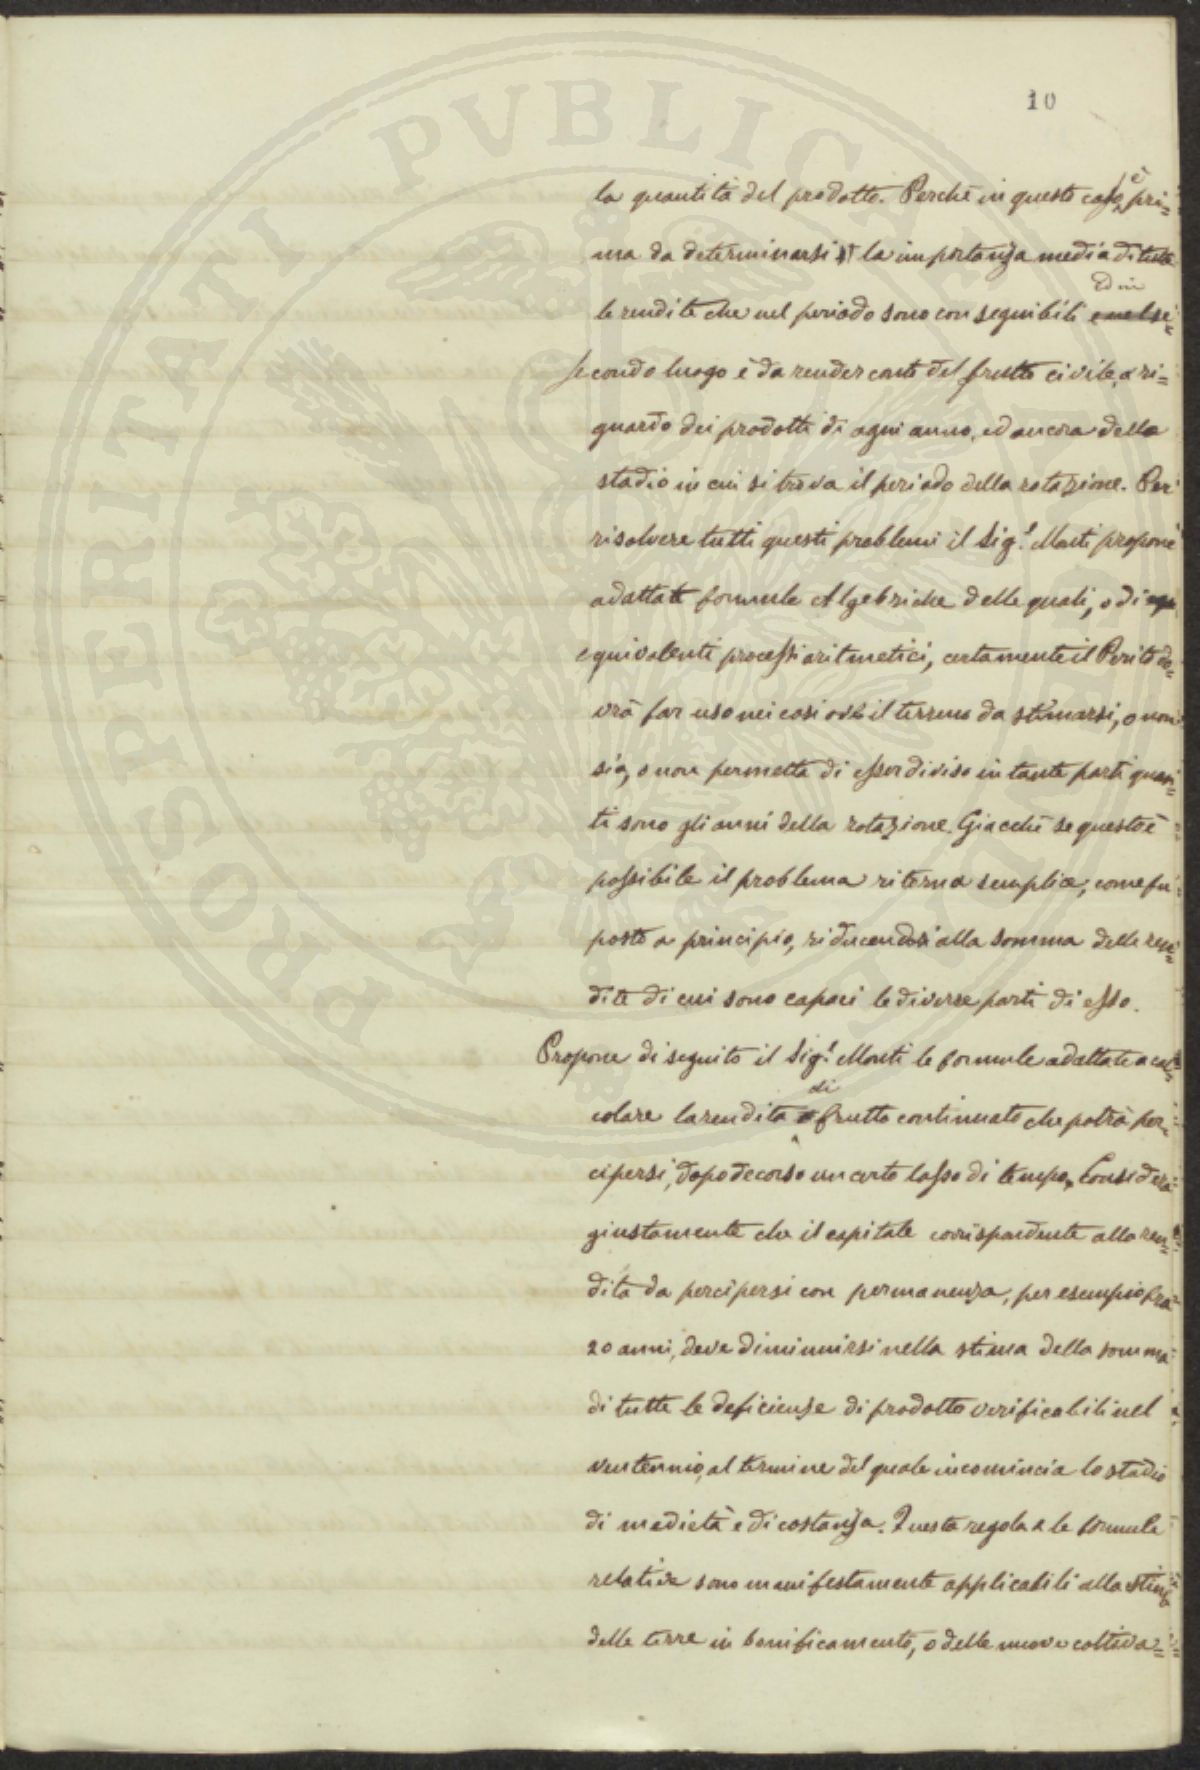 10
la quantità del prodotto. Perchè in questo caso è pri=
ma da determinarsi la importanza media di tutte
Ed in
le rendite che nel periodo sono conseguibili e nel se=
secondo luogo è da render conto del frutto civile, a ri=
guardo dei prodotti di ogni anno, ed ancora dello
stadio in cui si trova il periodo della rotazione. Per
risolvere tutti questi problemi il Sig.r Monti propone
adattate formule Algebriche delle quali, o di
equivalenti processi aritmetici, certamente il Perito do=
vrà far uso nei casi ove il terreno da stimarsi, o non
sia, o non permetta di esser diviso in tante parti quan=
ti sono gli anni della rotazione. Giacchè se questo è
possibile il problema ritorna semplice, come fu
posto a principio, riducendosi alla somma delle ren=
dite di cui sono capaci le diverse parti di esso.
Propone di seguito il Sig.r Monti le formule adattate a cal=
di
colare la rendita frutto continuato che potrà per=
cipersi, dopo decorso un certo lasso di tempo. Considera
giustamente che il capitale corrispondente alla ren=
dita da percipersi con permanenza, per esempio fra
20 anni, deve diminuirsi nella stima della somma
di tutte le deficienze di prodotto verificabili nel
ventennio, al termine del quale incomincia lo stadio
di medietà e di costanza. Questa regola e le formule
relative sono manifestamente applicabili alla stima
delle terre in bonificamento, o delle nuove coltiva=
PROSPERITATI PVBLICAE